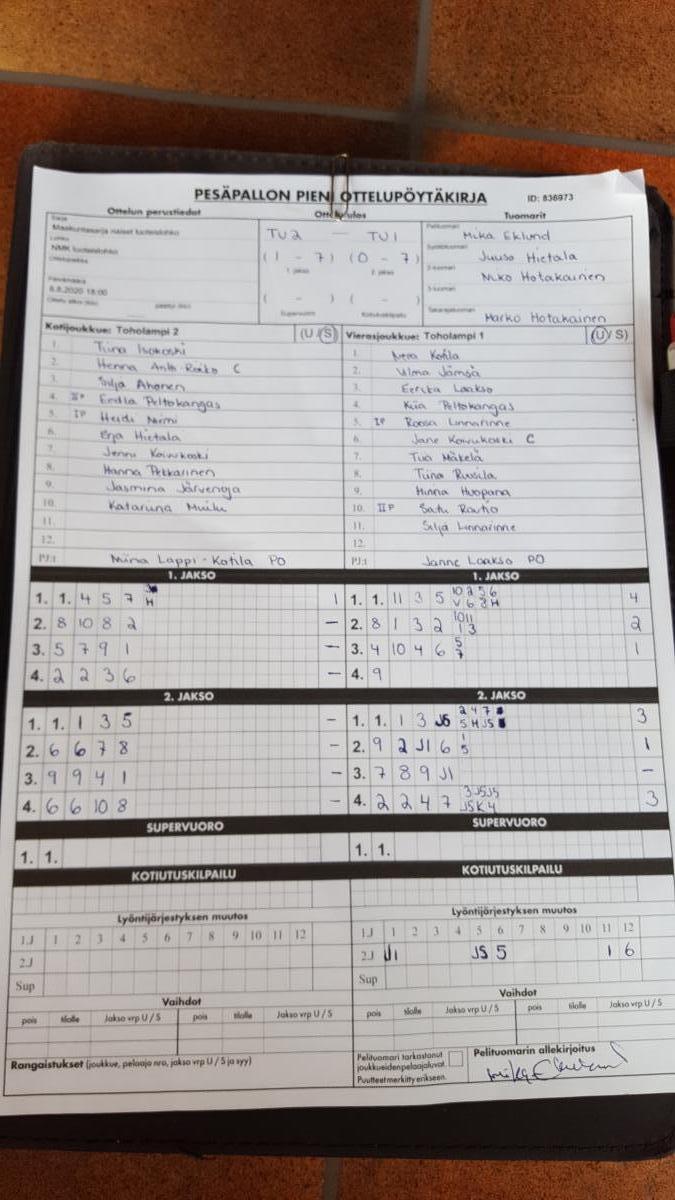 PESÄPALLON PIENI OTTELUPÖYTÄKIRJA ID: 836973
Ottelun perustiedot Ottelutulos Tuomarit
Sarja
Maakuntasarja naiset luoteislohko
Lohko
NMK luoteislohko
Ottelupaikka
Päivämäärä
6.8.2020 18:00
TU2 — TU1
(1 - 7) (0 - 7)
1. jakso 2. jakso
( - ) ( - )
Supervuoro Kotiutuskilpailu
Pelituomari Mika Eklund
Syöttötuomari Juuso Hietala
2-tuomari Niko Hotakainen
3-tuomari
Takarajatuomari Marko Hotakainen
Kotijoukkue: Toholampi 2 (U / S)
1. Tiina Isokoski
2. Henna Antti-Roiko C
3. Silja Ahonen
4. IIP Eedla Peltokangas
5. IP Heidi Niemi
6. Erja Hietala
7. Jenni Koivukoski
8. Hanna Pekkarinen
9. Jasmina Järvenoja
10. Katariina Muilu
11.
12.
PJ:t Minna Lappi-Kotila PO
Vierasjoukkue: Toholampi 1 (U / S)
1. Neea Kotila
2. Vilma Jämsä
3. Eerika Laakso
4. Kiia Peltokangas
5. IP Roosa Linnarinne
6. Jane Koivukoski C
7. Tua Mäkelä
8. Tiina Ruuska
9. Minna Huopana
10. IIP Satu Rautio
11. Silja Linnarinne
12.
PJ:t Janne Laakso PO
1. JAKSO
1. 1. 4 5 7 H 1
2. 8 10 8 2 –
3. 5 7 9 1 –
4. 2 2 3 6 –
2. JAKSO
1. 1. 1 3 5 –
2. 6 6 7 8 –
3. 9 9 4 1 –
4. 6 6 10 8 –
SUPERVUORO
1. 1.
KOTIUTUSKILPAILU
Lyöntijärjestyksen muutos
1.J 1 2 3 4 5 6 7 8 9 10 11 12
2.J
Sup
Vaihdot
pois tilalle Jakso vrp U / S pois tilalle Jakso vrp U / S
Rangaistukset (joukkue, pelaaja nro, jakso vrp U / S ja syy)
1. JAKSO
1. 1. 11 3 5 10 2 5 6 4
V 6 8 H
2. 8 1 3 2 10 11 2
1 3
3. 4 10 4 6 5 1
7
4. 9
2. JAKSO
1. 1. 1 3 J5 2 4 7 3
5 H J5
2. 9 2 J1 6 1 1
5
3. 7 8 9 J1 –
4. 2 2 4 7 3 J5 J5 3
J5 K 4
SUPERVUORO
1. 1.
KOTIUTUSKILPAILU
Lyöntijärjestyksen muutos
1.J 1 2 3 4 5 6 7 8 9 10 11 12
2.J J1 J5 5 1 6
Sup
Vaihdot
pois tilalle Jakso vrp U / S pois tilalle Jakso vrp U / S
Pelituomari tarkastanut
joukkueiden pelaajaluvat.
Puutteet merkitty erikseen.
Pelituomarin allekirjoitus